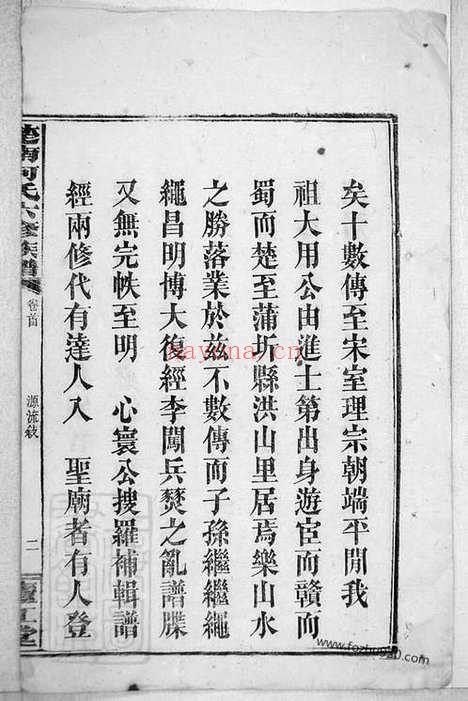 矣十數傳至宋室理宗朝端平閒我
祖大用公由進士第出身遊宦而贛而
蜀而楚至蒲圻縣洪山里居焉樂山水
之勝落業於茲不數傳而子孫繼繼繩
繩昌明博大復經李闖兵焚之亂譜牒
又無完帙至明 心寰公搜羅補輯譜
經兩修代有達人入 聖廟者有人登
楚南何氏六修族譜
卷首
源流敘
二
hayona.cn
www.fozhu920.com